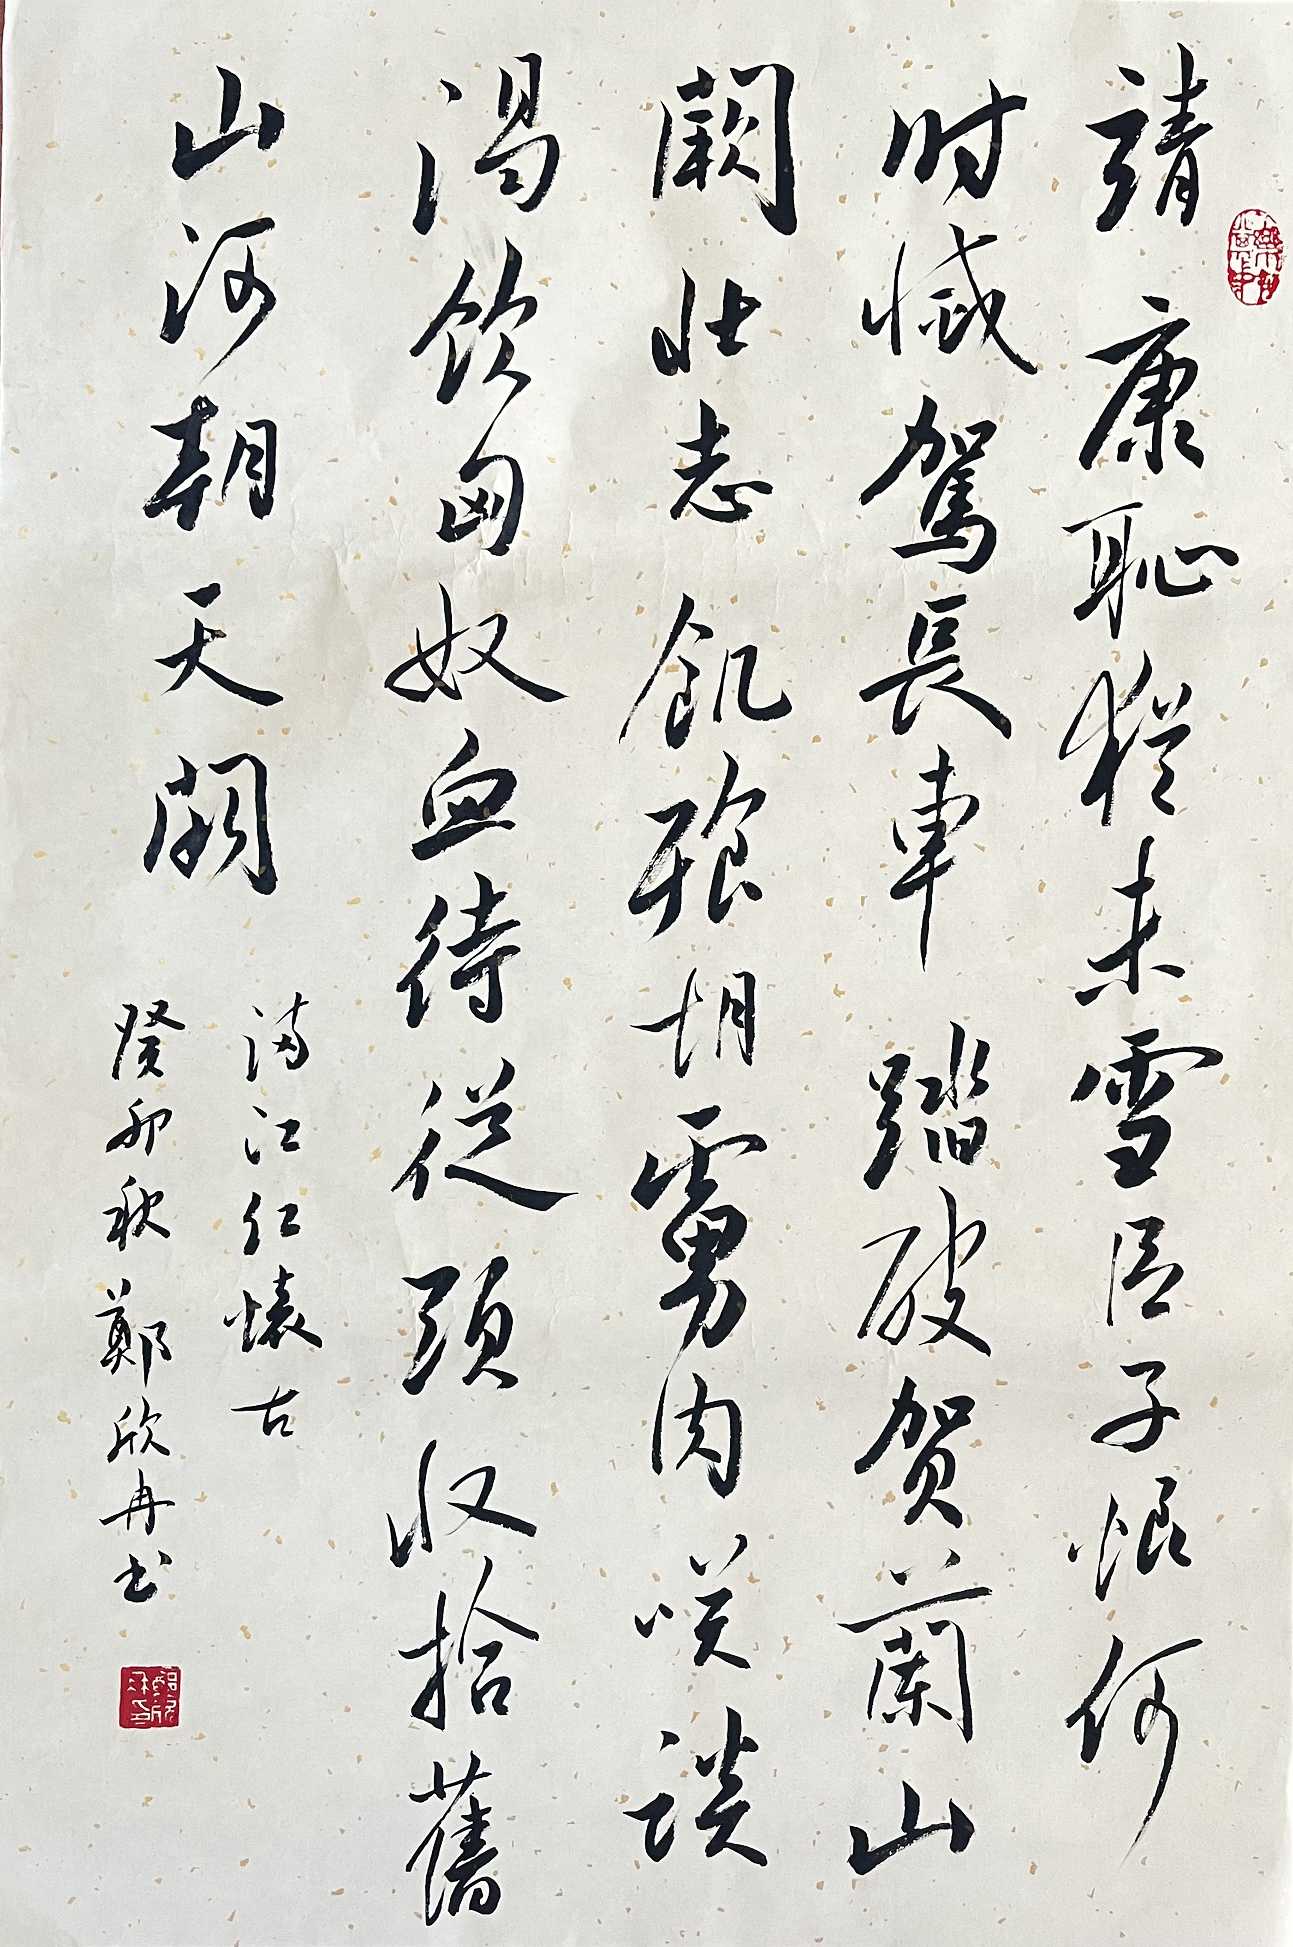 靖康恥猶未雪臣子恨何
时憾駕長車踏破贺蘭山
闕壮志飢飱胡虜肉笑談
渴饮匈奴血待從頭收拾舊
山河朝天闕
满江红懐古
癸卯秋鄭欣冉书